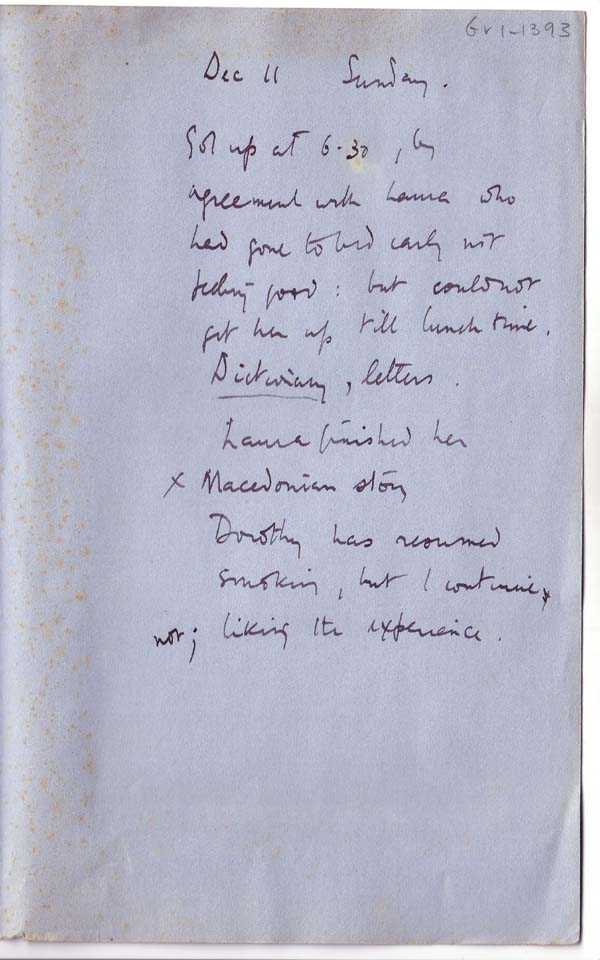 Gv1-1393
Dec 11 Sunday.
Got up at 6-30, by
agreement with Laura who
had gone to bed early not
feeling good: but could not
get her up till lunch time.
Dictionary, letters.
Laura finished her
x Macedonian story
Dorothy has resumed
smoking, but I continue x
not; liking the experience.